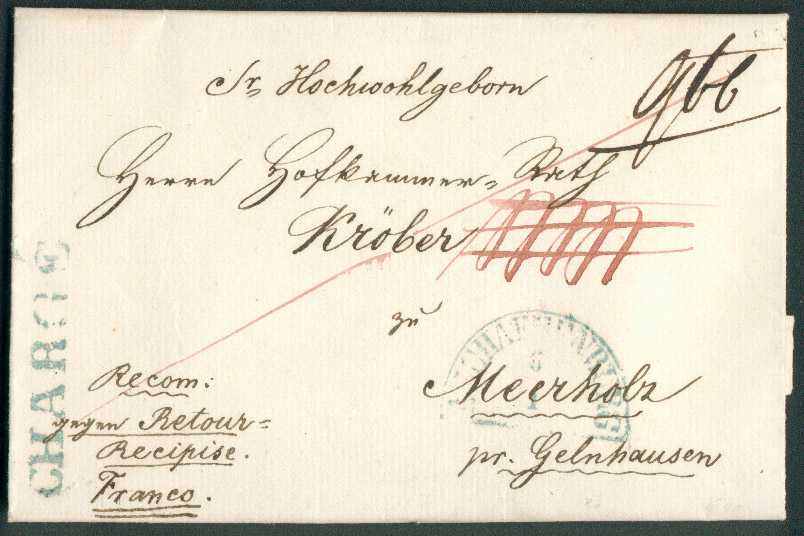 Sr. Hochwohlgeborn
Herrn Hofkammer-Rath
Kröber
zu
Meerholz
pr. Gelnhausen
Recom:
gegen Retour=
Recipise.
Franco.
CHARGE
6